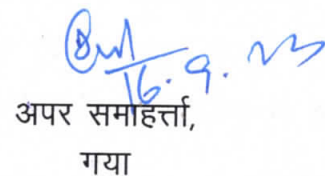 16.9.23
अपर समाहर्त्ता,
गया